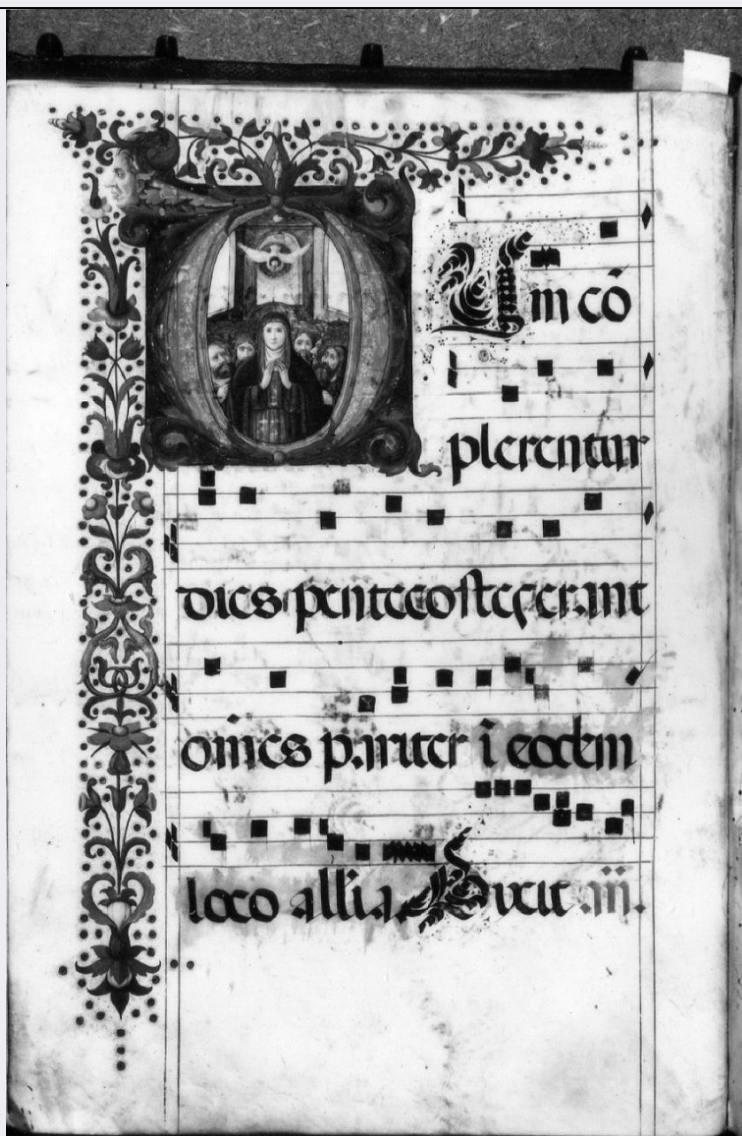 DUm cō
plerentur
dies pentecostes erant
om̄es pariter ī eodem
loco all'ia. Dixit